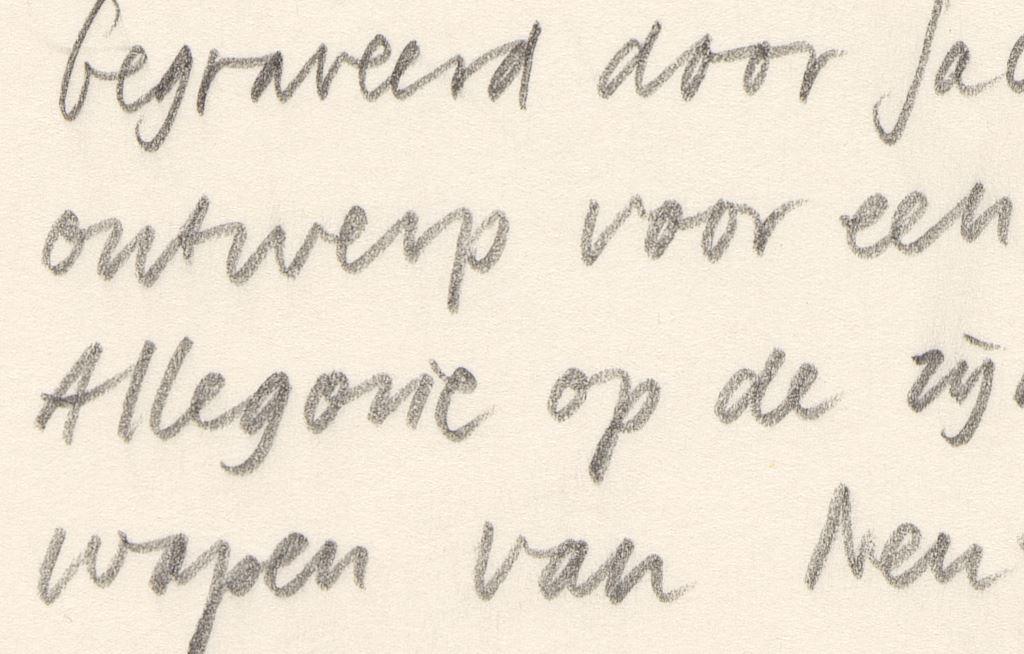 Gegraveerd door Jac
ontwerp voor een
Allegorie op de zij
wapen van Neu